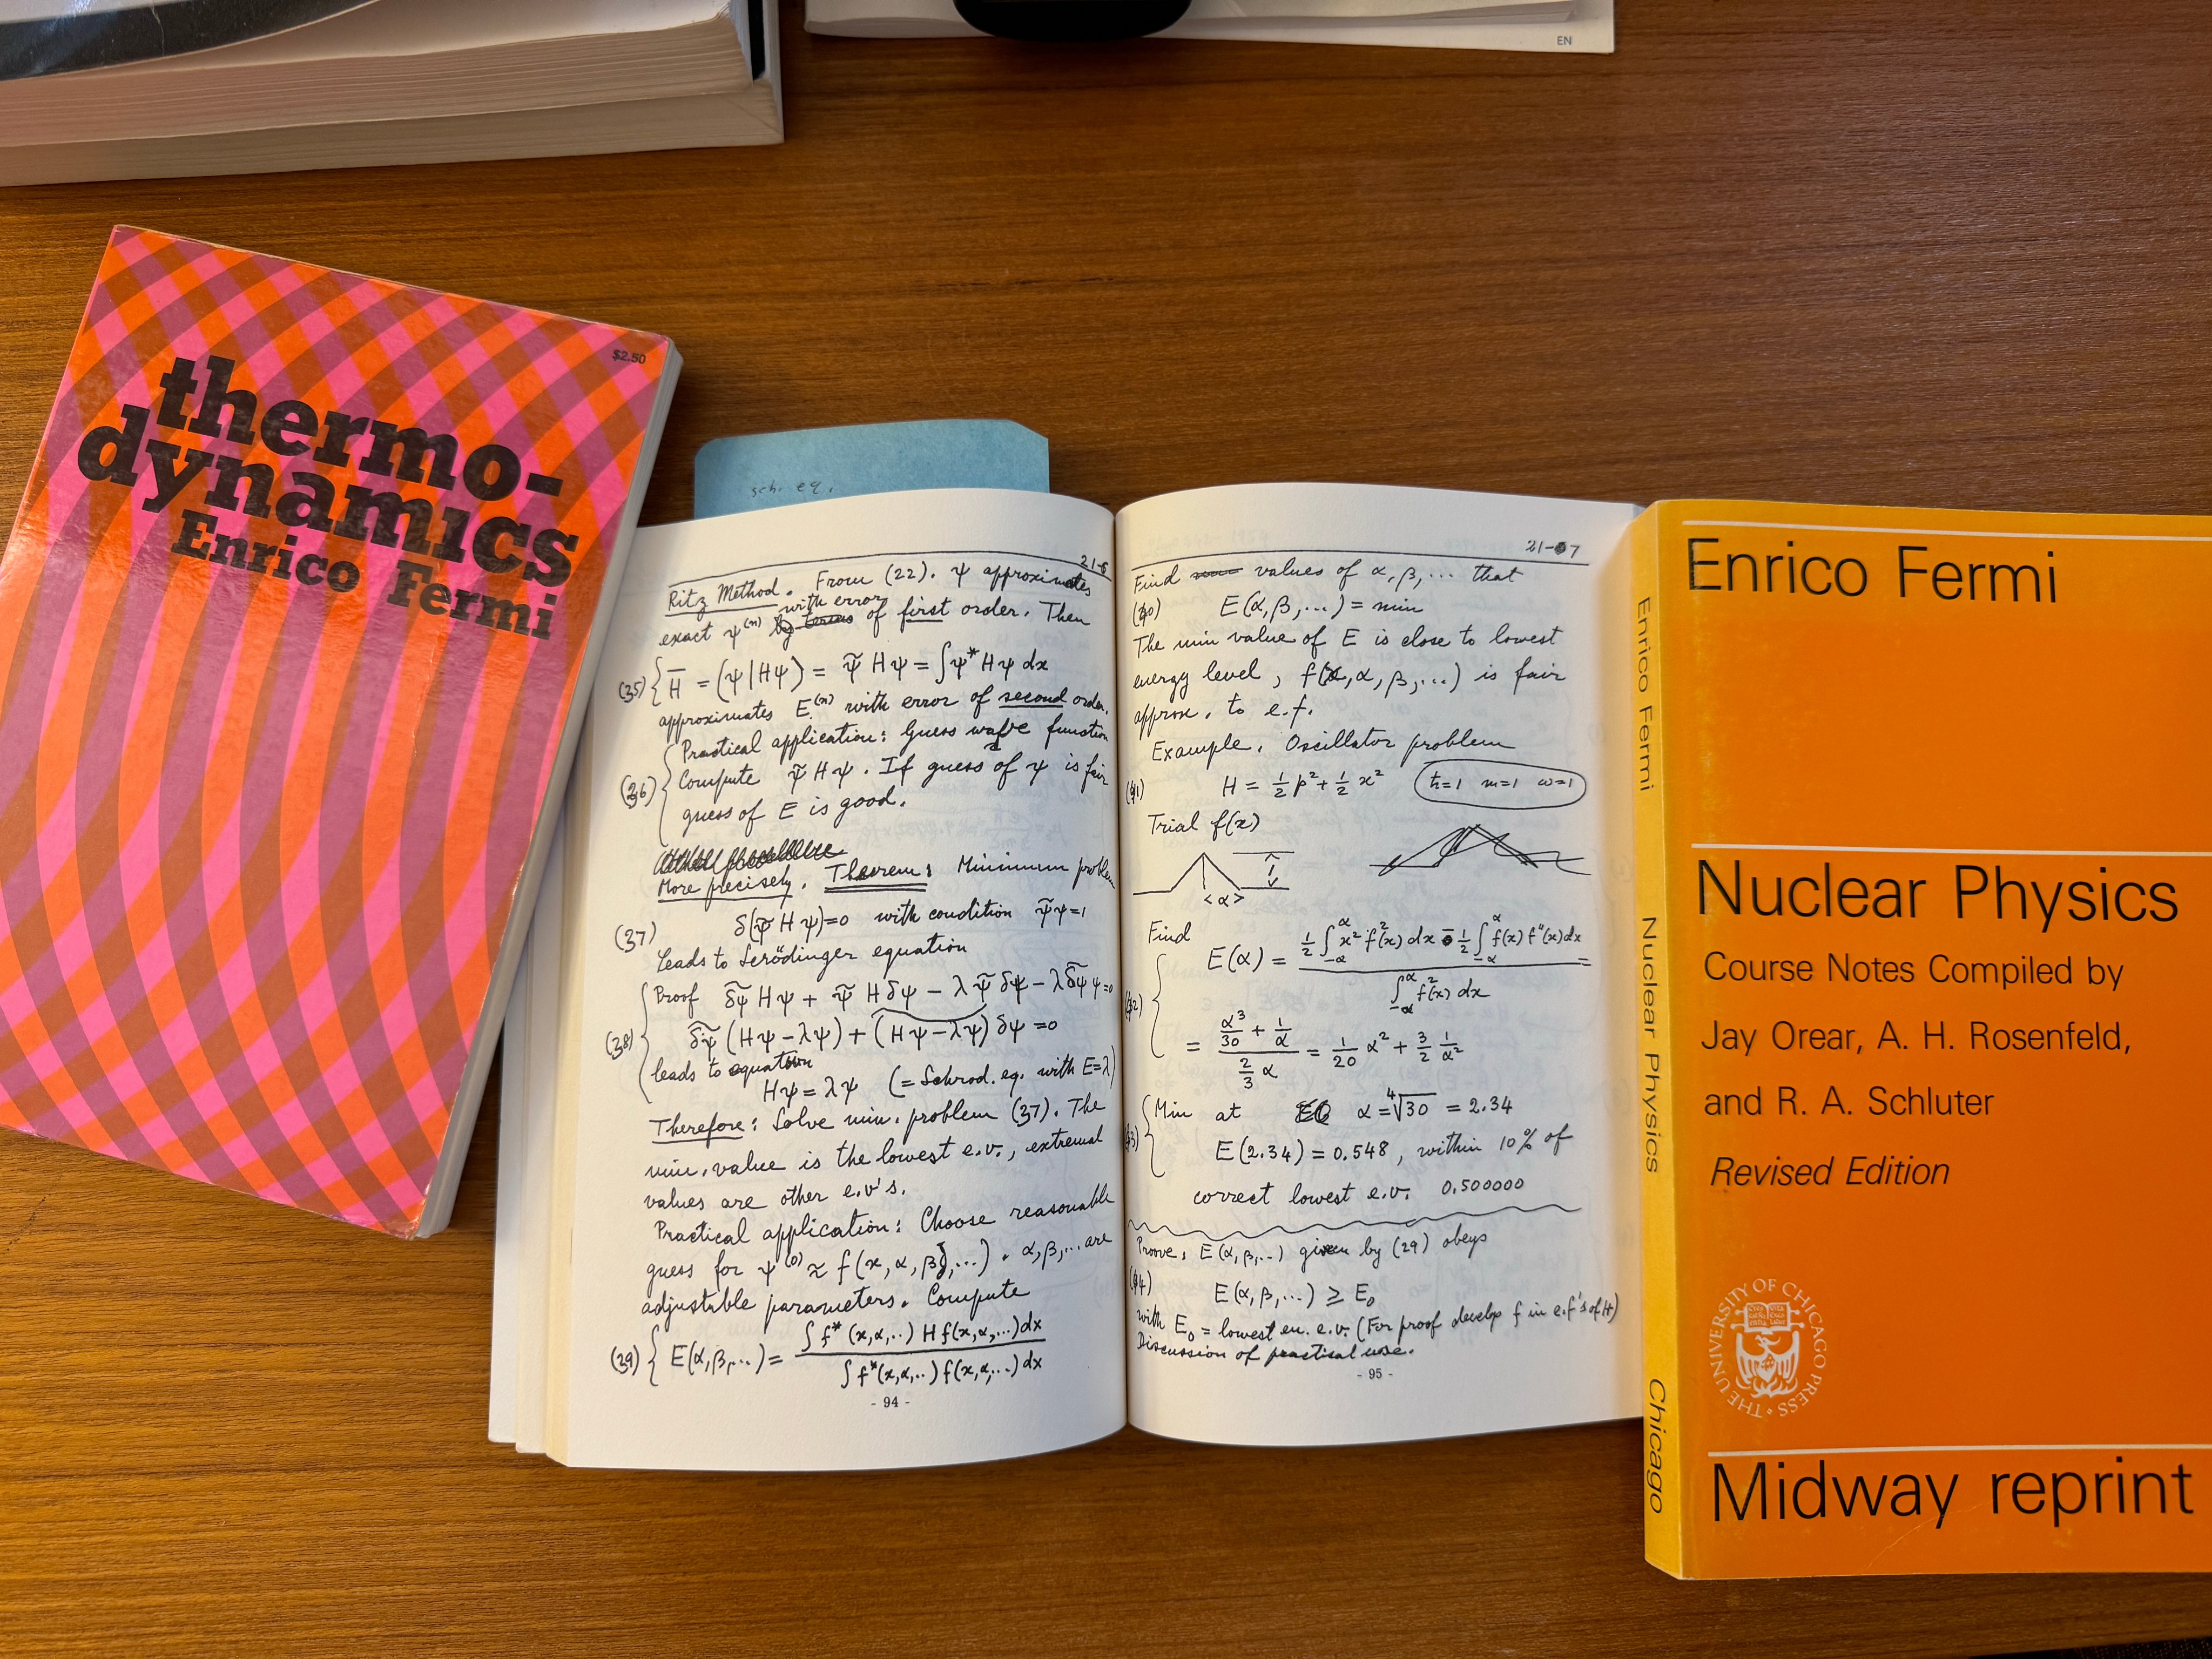 EN
$2.50
thermo-
dynamics
Enrico Fermi
sch. eq.
21-6
Ritz Method. From (22). ψ approximates
exact ψ⁽ⁿ⁾ with error of first order. Then
(35) H̅ = (ψ|Hψ) = ψ̃ H ψ = ∫ψ* H ψ dx
approximates E⁽ⁿ⁾ with error of second order.
Practical application: Guess wave function
(36) Compute ψ̃ H ψ. If guess of ψ is fair
guess of E is good.
More precisely. Theorem: Minimum problem
(37) δ(ψ̃ H ψ)=0 with condition ψ̃ψ=1
Leads to Scrödinger equation
Proof δ̃ψ Hψ + ψ̃ H δψ − λ ψ̃ δψ − λ δ̃ψ ψ=0
(38) δ̃ψ (Hψ−λψ) + (Hψ−λψ)~ δψ =0
leads to equation
Hψ = λψ (= Schrod. eq. with E=λ)
Therefore: Solve min. problem (37). The
min. value is the lowest e.v., extremal
values are other e.v's.
Practical application: Choose reasonable
guess for ψ⁽⁰⁾ ≈ f(x, α, β, ...). α, β, ... are
adjustable parameters. Compute
(39) E(α, β, ...) = ∫ f*(x,α,..) H f(x,α,...) dx / ∫ f*(x,α,..) f(x,α,...) dx
- 94 -
21-7
Find values of α, β, ... that
(40) E(α, β, ...) = min
The min value of E is close to lowest
energy level, f(x, α, β, ...) is fair
approx. to e.f.
Example. Oscillator problem
(41) H = ½ p² + ½ x² ħ=1 m=1 ω=1
Trial f(x)
1
<α>
Find
(42) E(α) = ½ ∫₋α^α x² f²(x) dx − ½ ∫₋α^α f(x) f''(x) dx / ∫₋α^α f²(x) dx =
= (α³/30 + 1/α) / (2/3 α) = 1/20 α² + 3/2 1/α²
Min at α = ⁴√30 = 2.34
(43) E(2.34) = 0.548, within 10% of
correct lowest e.v. 0.500000
Proove, E(α, β, ..) given by (29) obeys
(44) E(α, β, ...) ≥ E₀
with E₀ = lowest en. e.v. (For proof develop f in e.f's of H)
Discussion of practical use.
- 95 -
Enrico Fermi
Nuclear Physics
Chicago
Enrico Fermi
Nuclear Physics
Course Notes Compiled by
Jay Orear, A. H. Rosenfeld,
and R. A. Schluter
Revised Edition
THE UNIVERSITY OF CHICAGO PRESS
Midway reprint